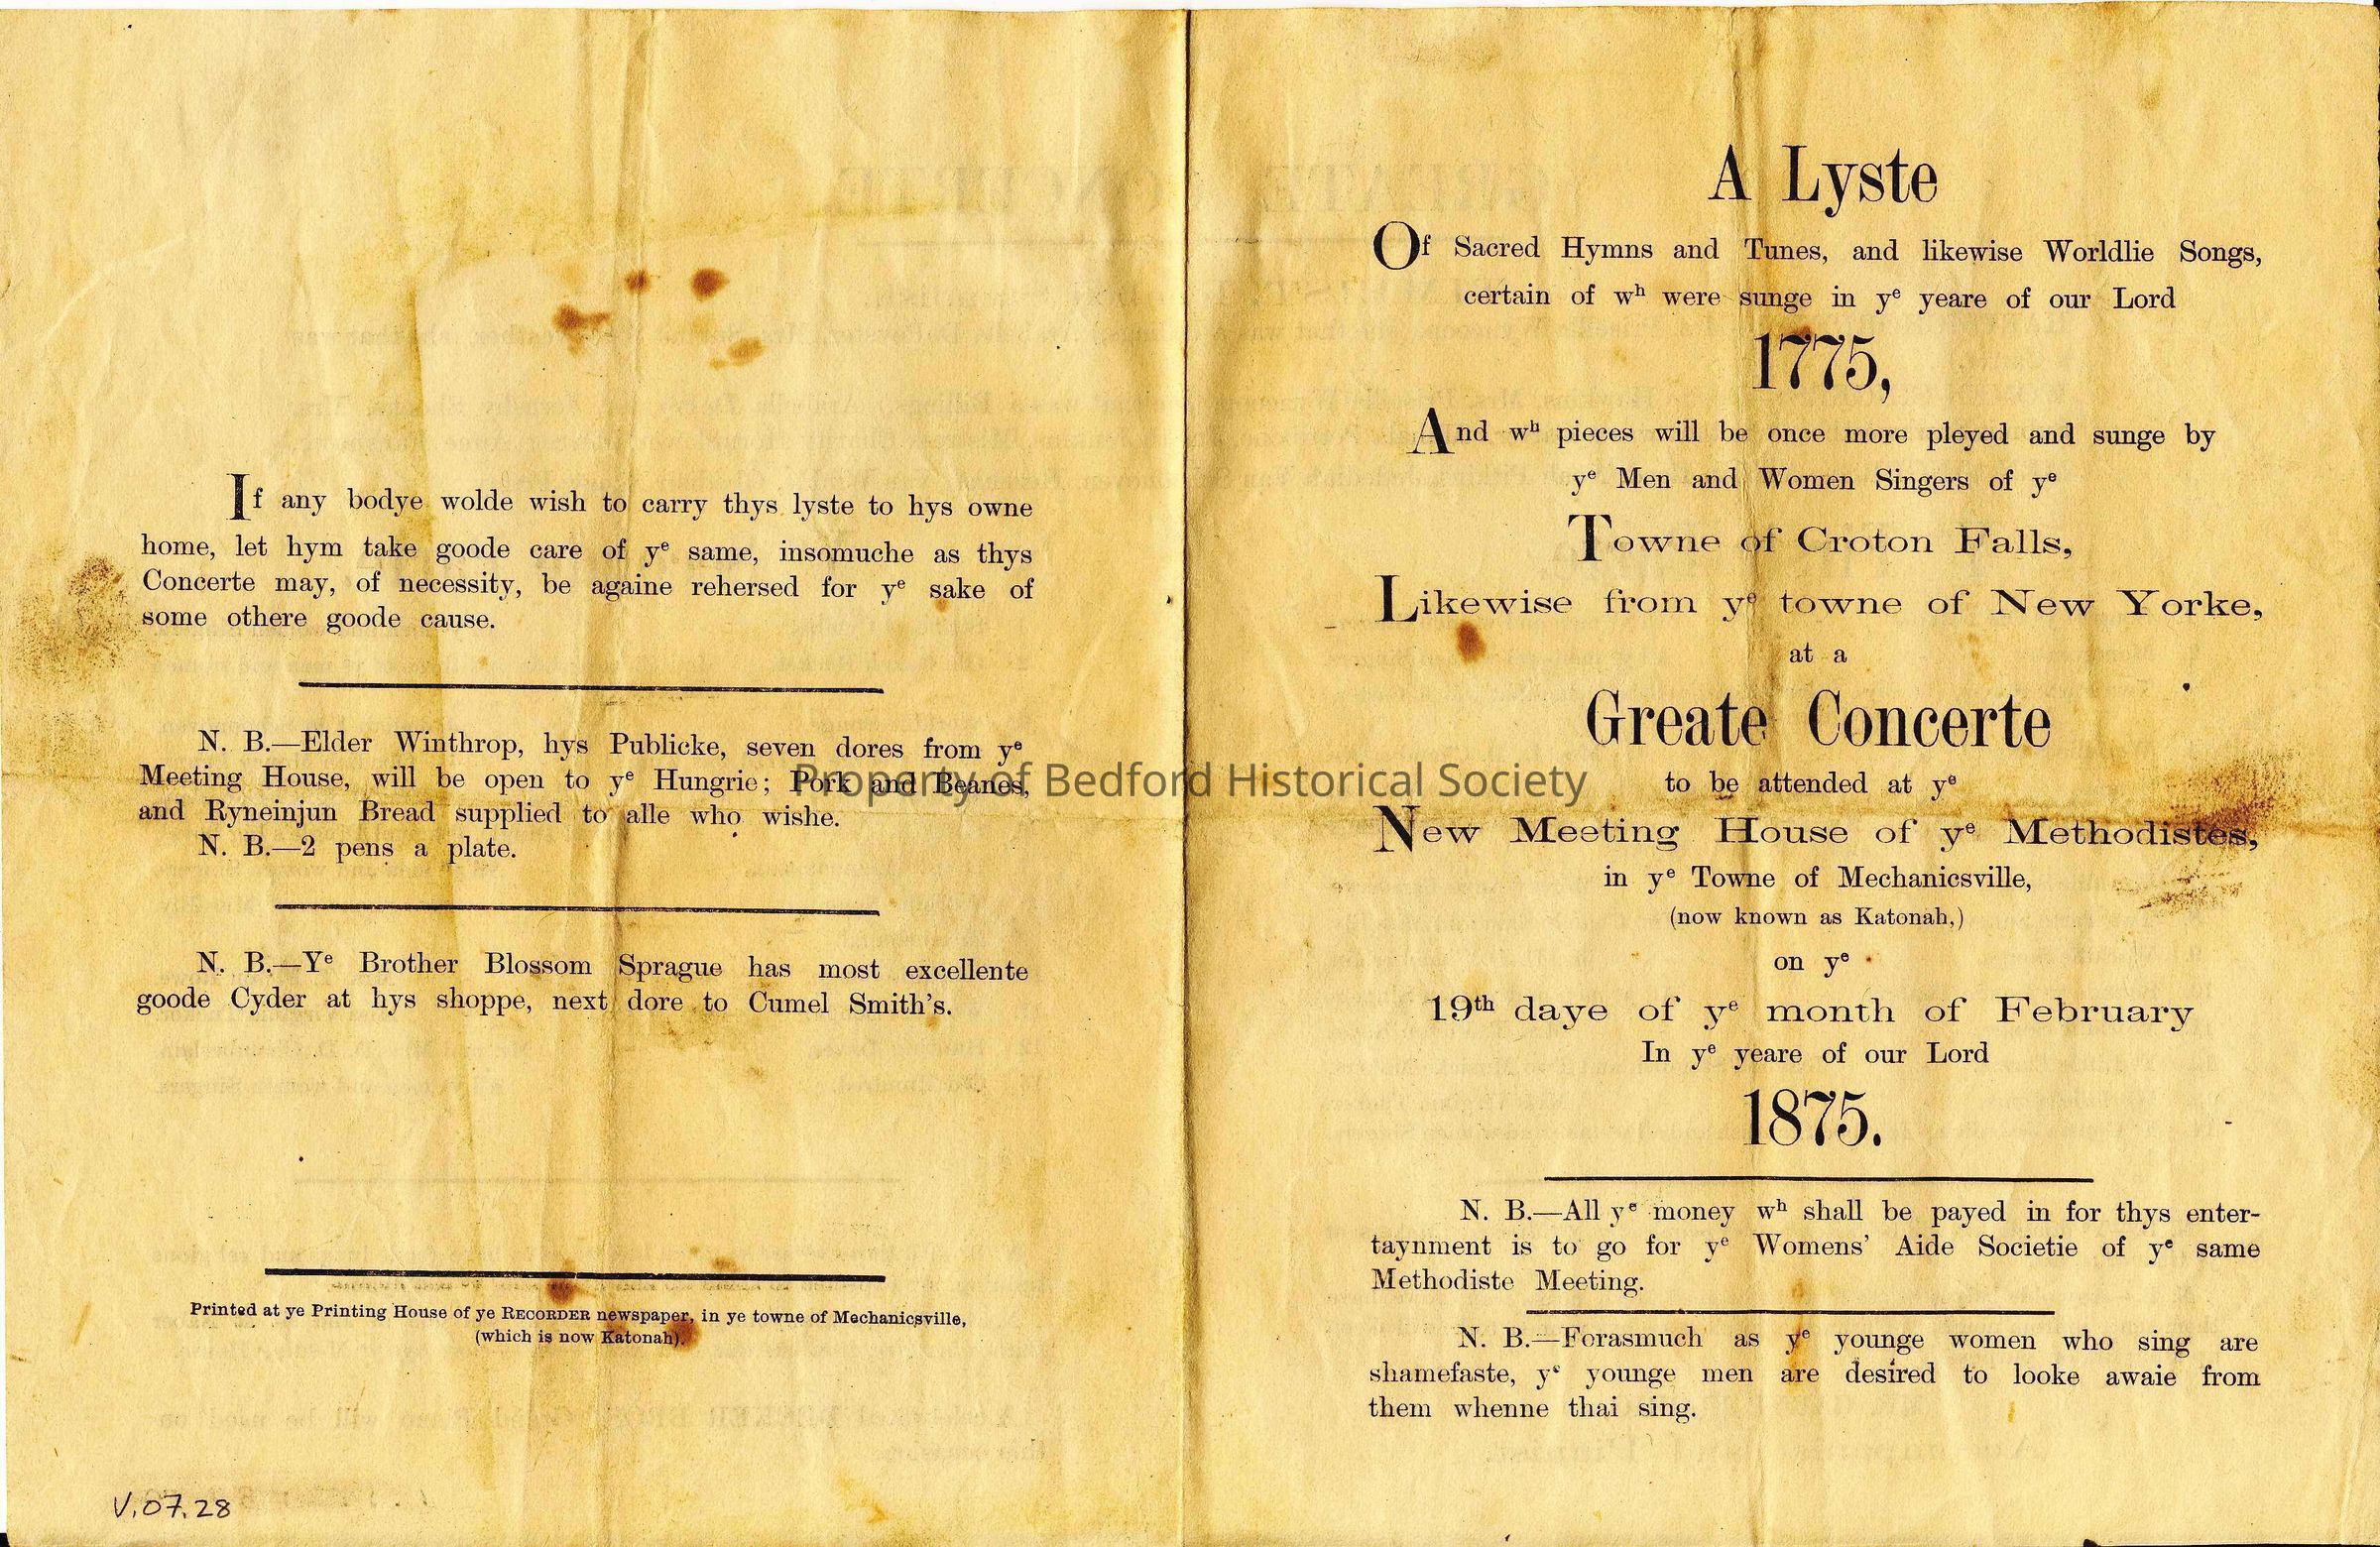 If any bodye wolde wish to carry thys lyste to hys owne
home, let hym take goode care of yᵉ same, insomuche as thys
Concerte may, of necessity, be againe rehersed for yᵉ sake of
some othere goode cause.
N. B.—Elder Winthrop, hys Publicke, seven dores from yᵉ
Meeting House, will be open to yᵉ Hungrie; Pork and Beanes,
and Ryneinjun Bread supplied to alle who wishe.
N. B.—2 pens a plate.
N. B.—Yᵉ Brother Blossom Sprague has most excellente
goode Cyder at hys shoppe, next dore to Cumel Smith's.
Printed at ye Printing House of ye RECORDER newspaper, in ye towne of Mechanicsville,
(which is now Katonah).
V.07.28
A Lyste
Of Sacred Hymns and Tunes, and likewise Worldlie Songs,
certain of wʰ were sunge in yᵉ yeare of our Lord
1775,
And wʰ pieces will be once more pleyed and sunge by
yᵉ Men and Women Singers of yᵉ
Towne of Croton Falls,
Likewise from yᵉ towne of New Yorke,
at a
Greate Concerte
to be attended at yᵉ
New Meeting House of yᵉ Methodistes,
in yᵉ Towne of Mechanicsville,
(now known as Katonah,)
on yᵉ
19th daye of yᵉ month of February
In yᵉ yeare of our Lord
1875.
N. B.—All yᵉ money wʰ shall be payed in for thys enter-
taynment is to go for yᵉ Womens' Aide Societie of yᵉ same
Methodiste Meeting.
N. B.—Forasmuch as yᵉ younge women who sing are
shamefaste, yᵉ younge men are desired to looke awaie from
them whenne thai sing.
Property of Bedford Historical Society